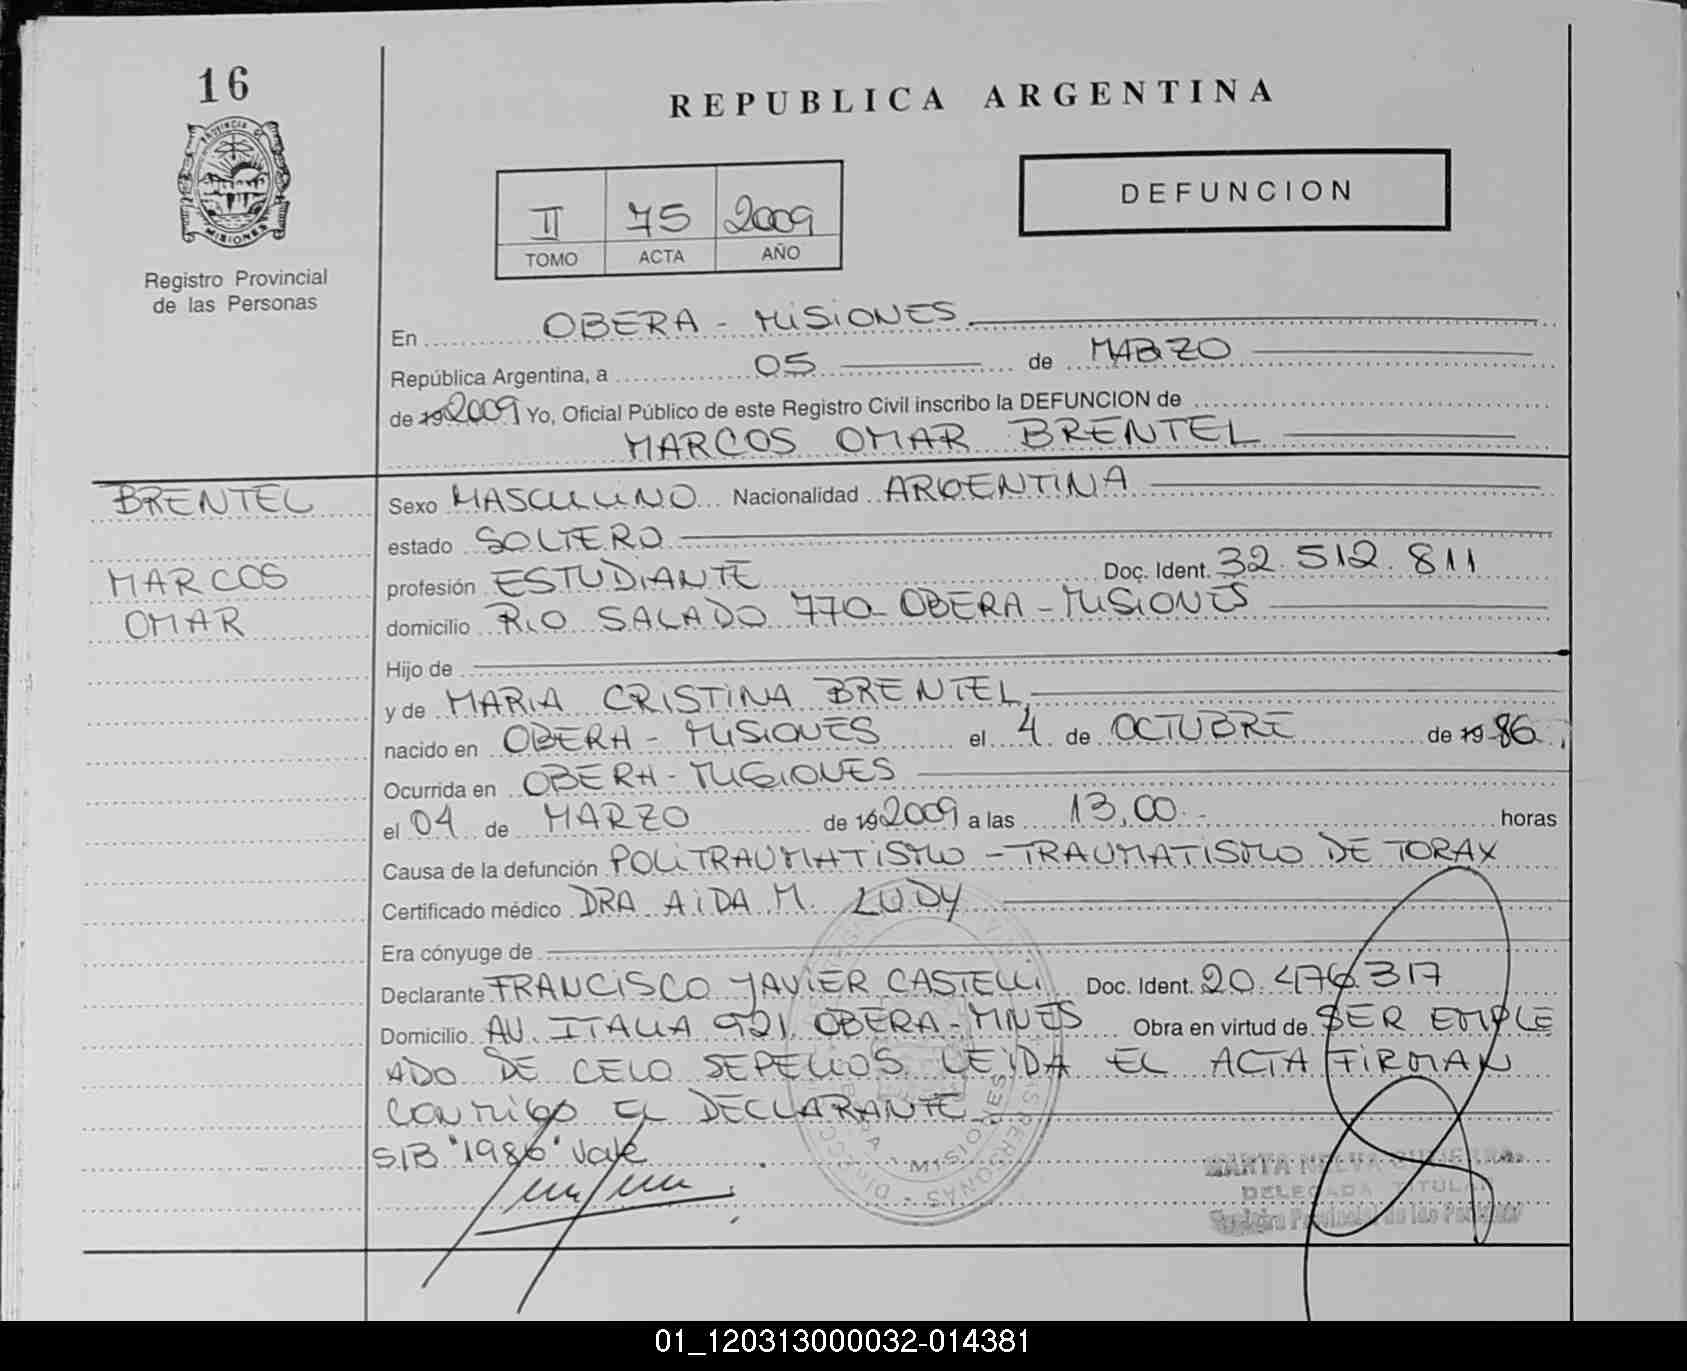 16
REPUBLICA ARGENTINA
PROVINCIA DE
MISIONES
DEFUNCION
II 75 2009
TOMO ACTA AÑO
Registro Provincial
de las Personas
En OBERA - MISIONES
República Argentina, a 05 de MARZO
de 19 2009 Yo, Oficial Público de este Registro Civil inscribo la DEFUNCION de
MARCOS OMAR BRENTEL
BRENTEL
MARCOS
OMAR
Sexo MASCULINO Nacionalidad ARGENTINA
estado SOLTERO
profesión ESTUDIANTE Doc. Ident. 32.512.811
domicilio RIO SALADO 770 - OBERA - MISIONES
Hijo de
y de MARIA CRISTINA BRENTEL
nacido en OBERA - MISIONES el 4 de OCTUBRE de 19 86
Ocurrida en OBERA - MISIONES
el 04 de MARZO de 19 2009 a las 13,00 - horas
Causa de la defunción POLITRAUMATISMO - TRAUMATISMO DE TORAX
Certificado médico DRA AIDA M. LUDY
Era cónyuge de
Declarante FRANCISCO JAVIER CASTELLI Doc. Ident. 20.476.317
Domicilio AV. ITALIA 921 OBERA - MNES Obra en virtud de SER EMPLE
ADO DE CELO SEPELIOS LEIDA EL ACTA FIRMAN
CONMIGO EL DECLARANTE
S/B "1986" Vale
MISIONES
DELEGADA TITULAR
Registro Provincial de las Personas
01_120313000032-014381